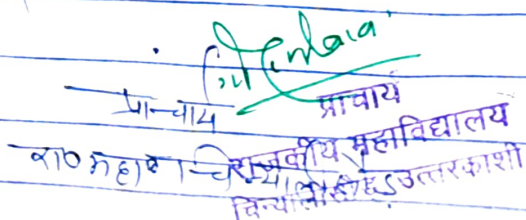 प्राचार्य
प्राचार्य
रा० महा० चिन्या
राजकीय महाविद्यालय
चिन्यालीसौड़ उत्तरकाशी